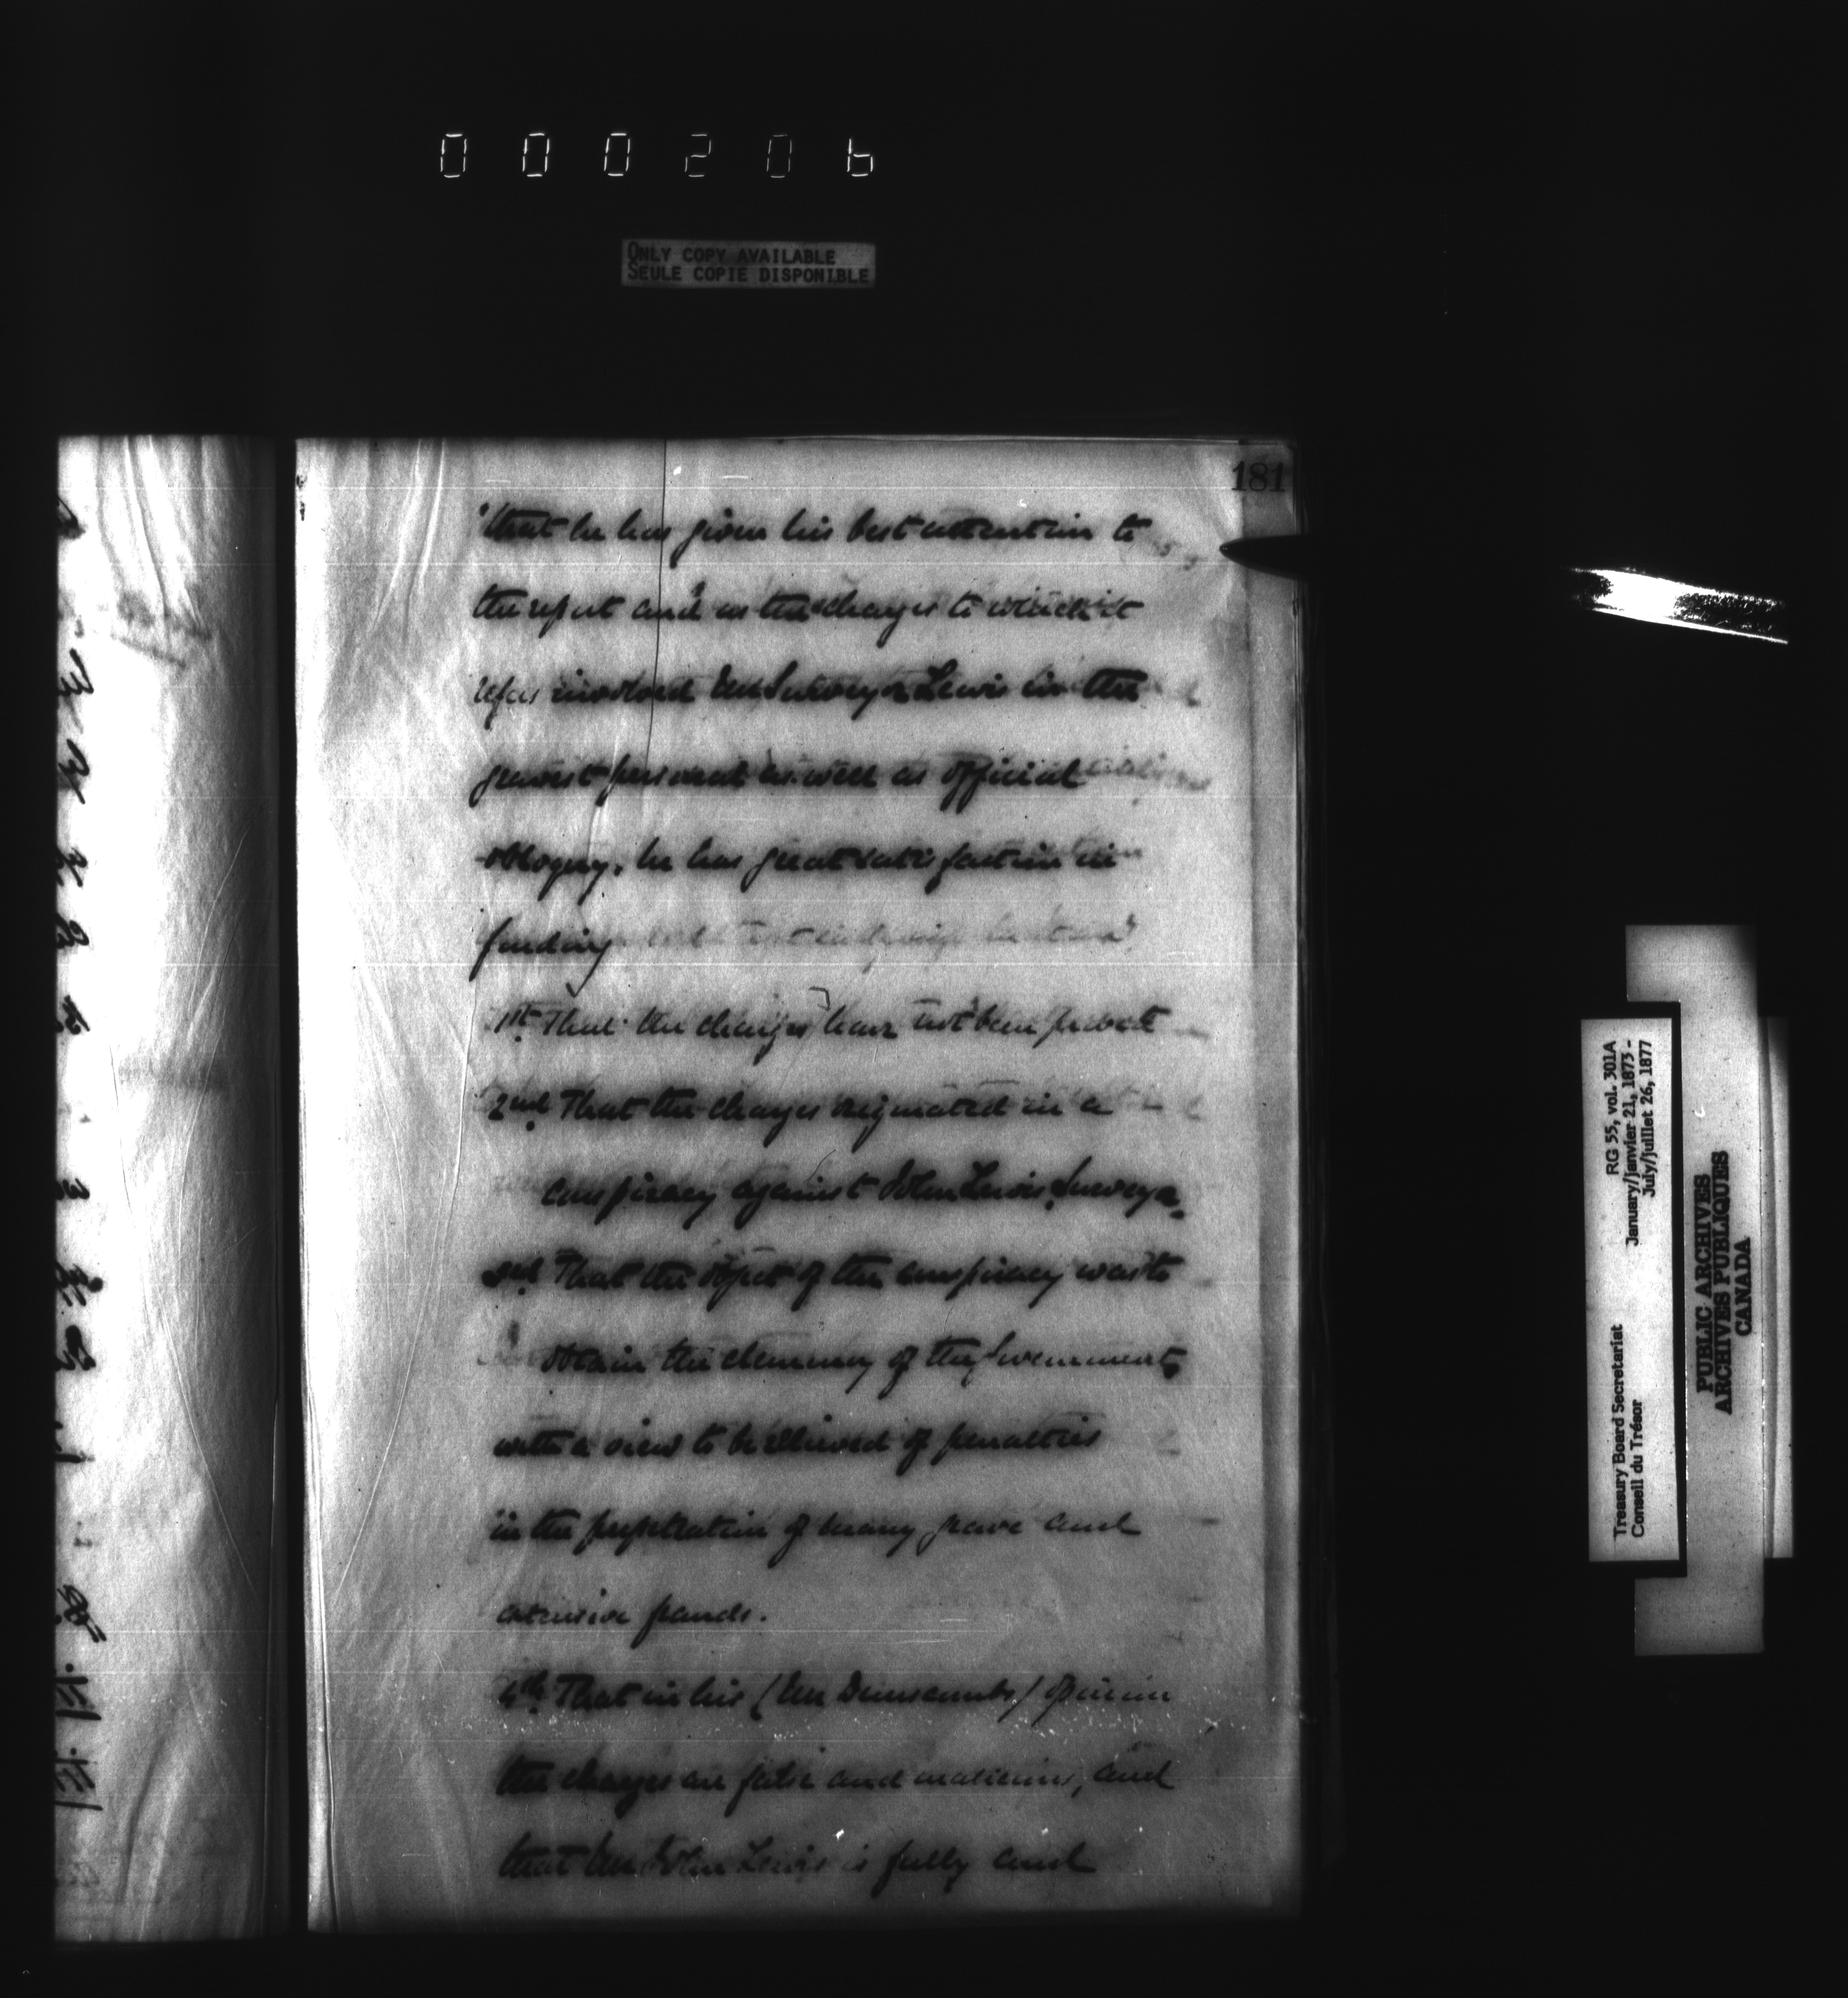 000206
ONLY COPY AVAILABLE
SEULE COPIE DISPONIBLE
181
that he has given his best attention to
the report and as the charges to which it
refers involved Mr Surveyor Lewis in the
gravest personal as well as official
obloquy, he has great satisfaction in
finding
1st That the charges have not been proved
2nd That the charges originated in a
conspiracy against John Lewis, Surveyor.
3rd That the object of the conspiracy was to
obtain the clemency of the Government,
with a view to be relieved of penalties
in the perpetration of many grave and
extensive frauds.
4th That in his (Mr Dunscombs) opinion
the charges are false and malicious, and
that Mr John Lewis is fully and
Treasury Board Secretariat
Conseil du Trésor
RG 55, vol. 301A
January/janvier 21, 1873 -
July/juillet 26, 1877
PUBLIC ARCHIVES
ARCHIVES PUBLIQUES
CANADA